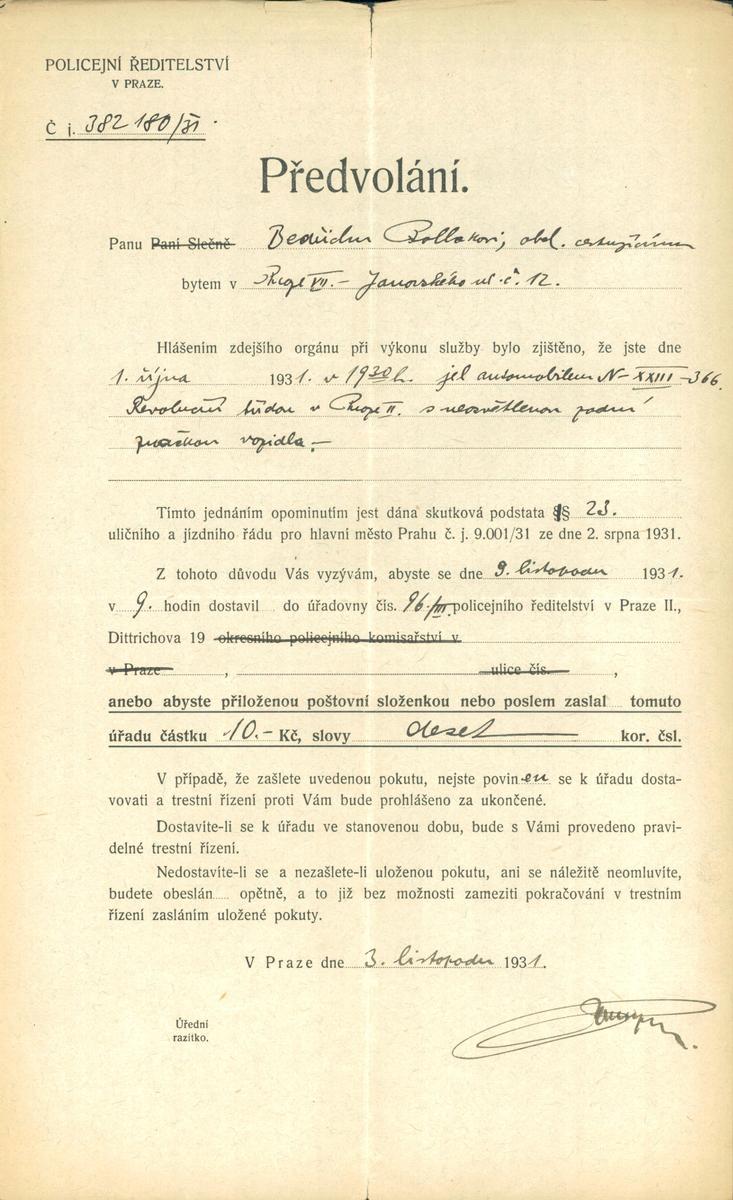 POLICEJNÍ ŘEDITELSTVÍ
V PRAZE.
Č j. 382 180/31.
Předvolání.
Panu Paní Slečně Bedřichu Pollakovi, obd. cestujícímu
bytem v Praze VII. – Janovského ul. č. 12.
Hlášením zdejšího orgánu při výkonu služby bylo zjištěno, že jste dne
1. října 1931. v 19 30 h. jel automobilem N–XXIII–366.
Revoluční třídou v Praze II. s neosvětlenou zadní
značkou vozidla.–
Tímto jednáním opominutím jest dána skutková podstata §§ 23.
uličního a jízdního řádu pro hlavní město Prahu č. j. 9.001/31 ze dne 2. srpna 1931.
Z tohoto důvodu Vás vyzývám, abyste se dne 9. listopadu 1931.
v 9. hodin dostavil do úřadovny čís. 96/III. policejního ředitelství v Praze II.,
Dittrichova 19 okresního policejního komisařství v
v Praze , ulice čís. ,
anebo abyste přiloženou poštovní složenkou nebo poslem zaslal tomuto
úřadu částku 10.– Kč, slovy deset kor. čsl.
V případě, že zašlete uvedenou pokutu, nejste povinen se k úřadu dosta-
vovati a trestní řízení proti Vám bude prohlášeno za ukončené.
Dostavíte-li se k úřadu ve stanovenou dobu, bude s Vámi provedeno pravi-
delné trestní řízení.
Nedostavíte-li se a nezašlete-li uloženou pokutu, ani se náležitě neomluvíte,
budete obeslán opětně, a to již bez možnosti zameziti pokračování v trestním
řízení zasláním uložené pokuty.
V Praze dne 3. listopadu 1931.
Úřední
razítko.